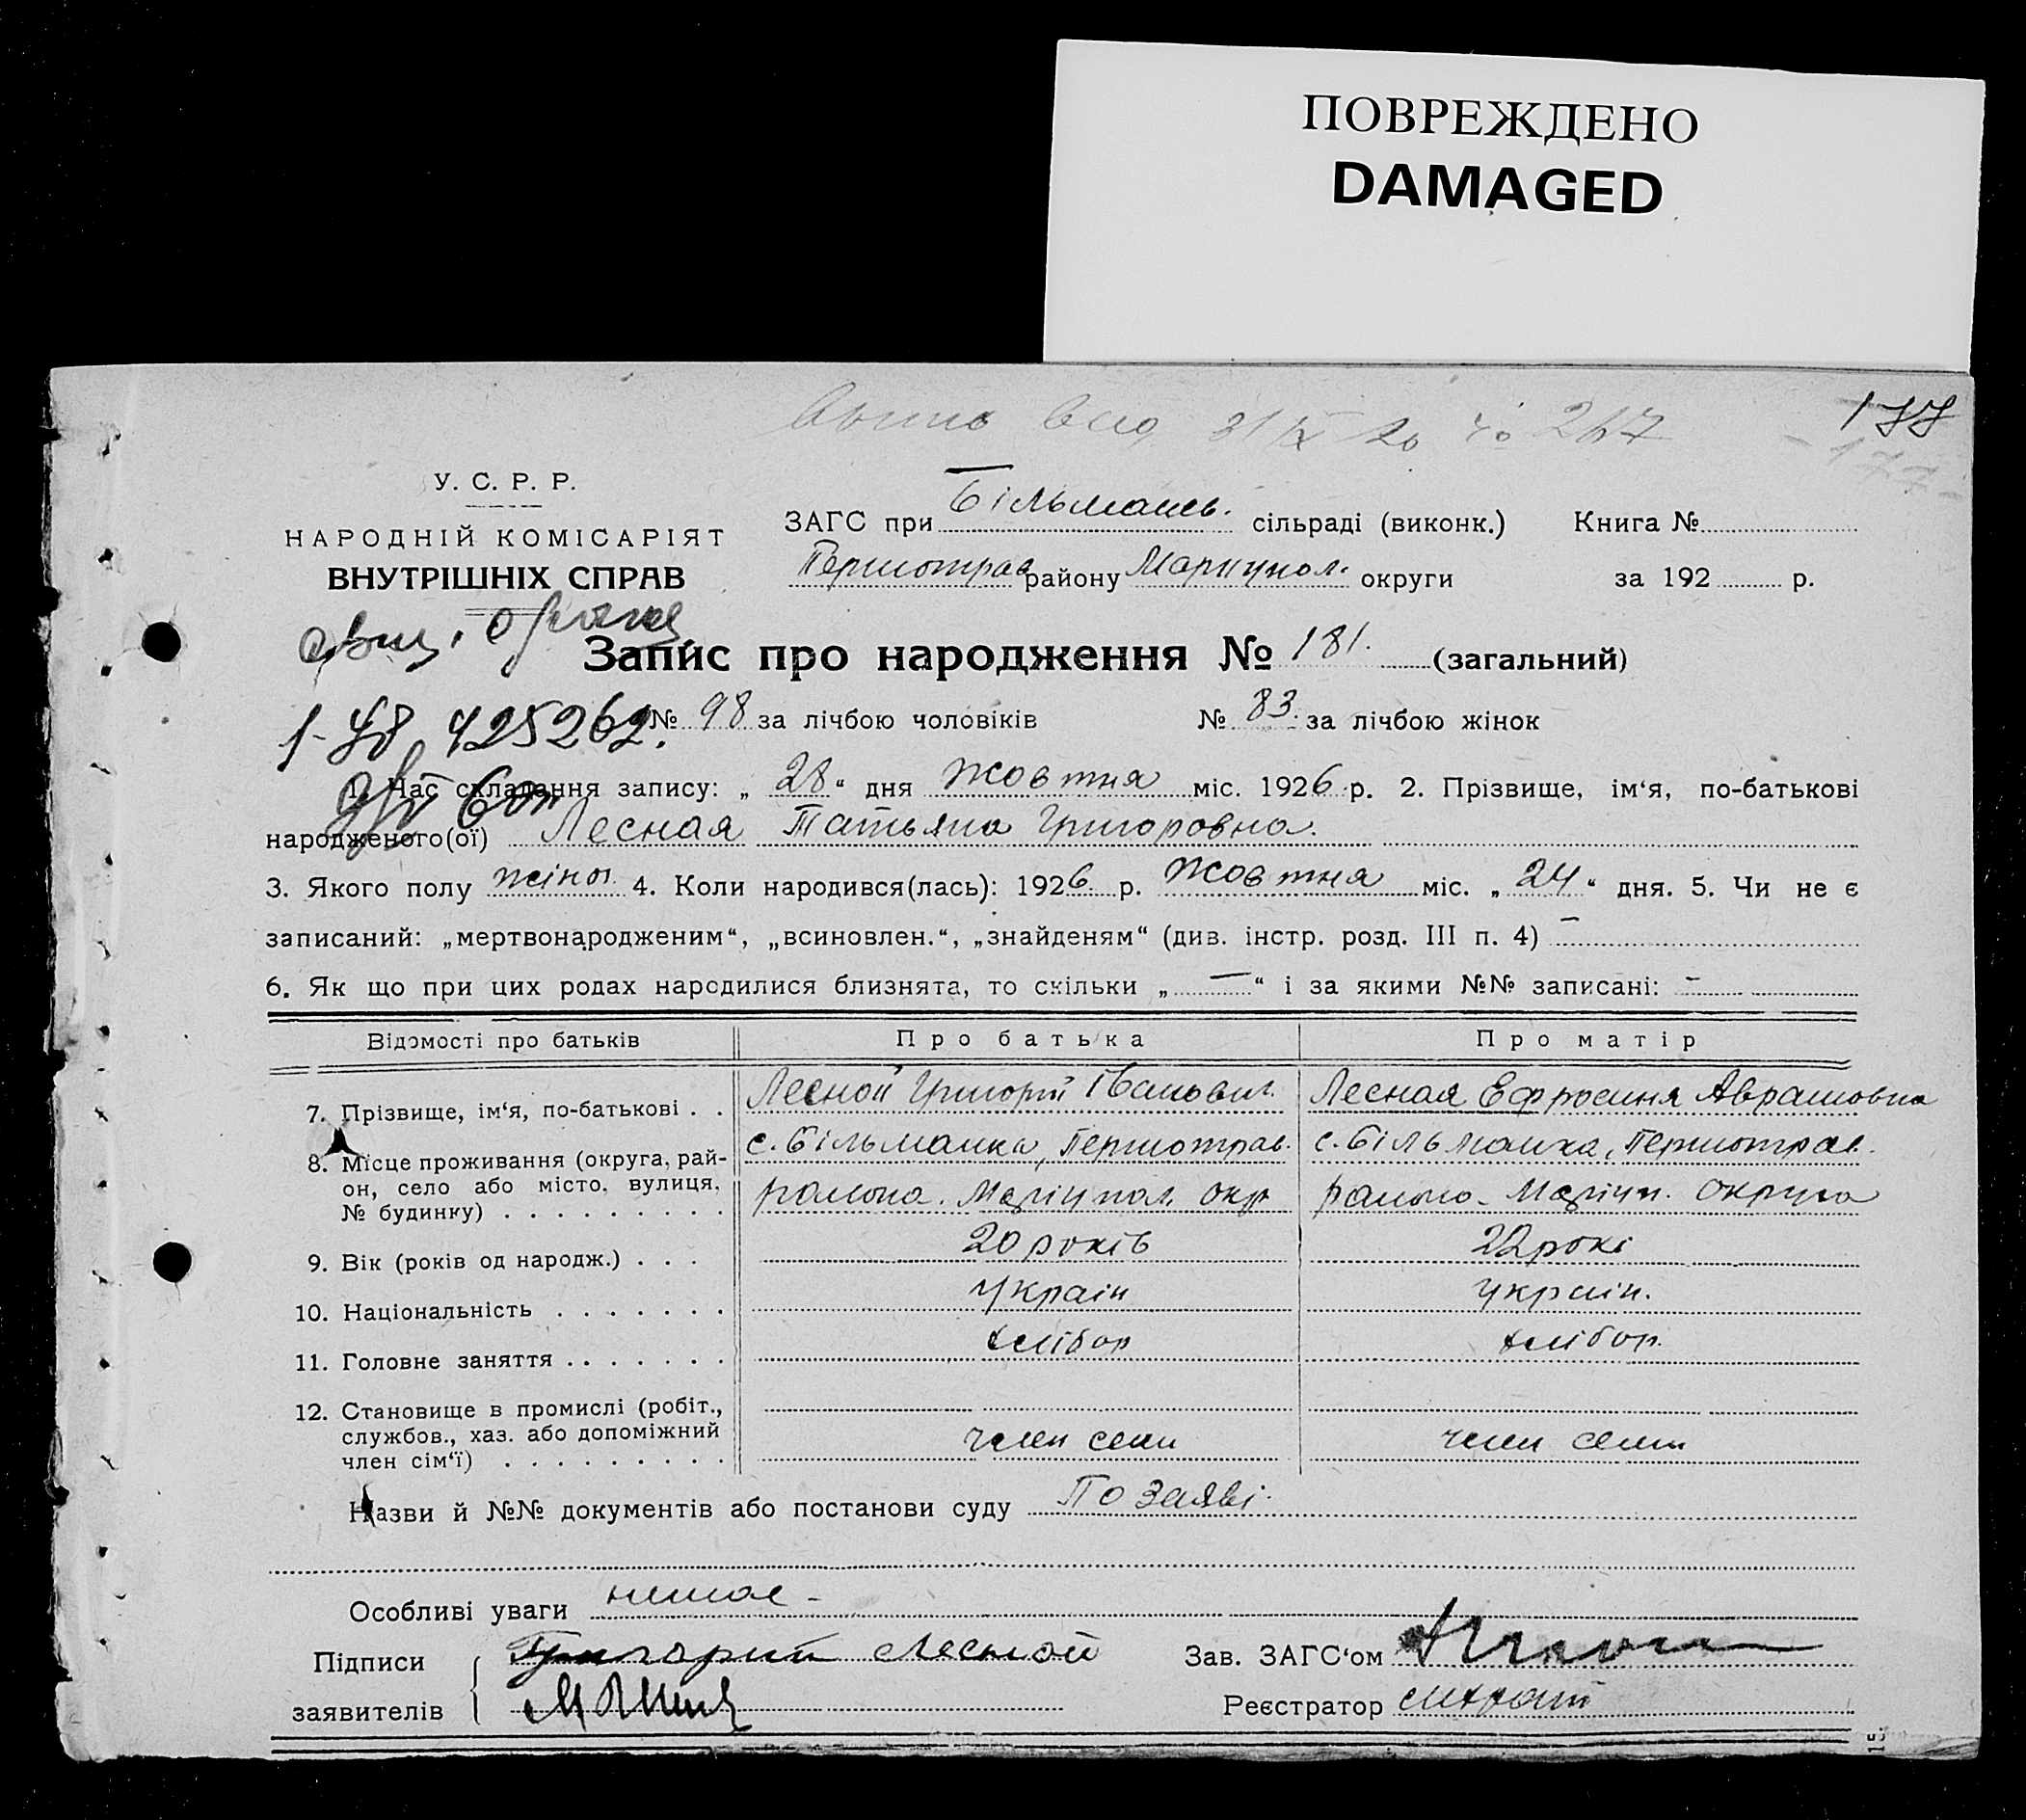 ПОВРЕЖДЕНО
DAMAGED
177
177
У. С. Р. Р.
НАРОДНІЙ КОМІСАРІЯТ
ВНУТРІШНІХ СПРАВ
ЗАГС при Більмансь. сільраді (виконк.) Книга №
Першотрав району Маріупол. округи за 192 р.
Запис про народження № 181. (загальний)
425262.
№ 98 за лічбою чоловіків № 83. за лічбою жінок
1. Час складання запису: „28“ дня жовтня міс. 1926 р. 2. Прізвище, ім‘я, по-батькові
народженого(ої) Лесная Татьяна Григоровна.
3. Якого полу жіноч. 4. Коли народився(лась): 1926 р. Жовтня міс. „24“ дня. 5. Чи не є
записаний: „мертвонародженим“, „всиновлен.“, „знайденям“ (див. інстр. розд. III п. 4) —
6. Як що при цих родах народилися близнята, то скільки „—“ і за якими №№ записані: —
Відомості про батьків Про батька Про матір
7. Прізвище, ім‘я, по-батькові . . Лесной Григорій Іванович. Лесная Ефросиния Аврамовна
8. Місце проживання (округа, рай- с. Більманка, Першотрав. с. Більманка, Першотрав.
он, село або місто, вулиця,
№ будинку) района. Маріупол. окр района. Маріуп. округа
9. Вік (років од народж.) . . . 20 років 22 рокі
10. Національність україн україн.
11. Головне заняття хлібор хлібор.
12. Становище в промислі (робіт.,
службов., хаз. або допоміжний
член сім‘ї) член семи член семи
Назви й №№ документів або постанови суду По заяві.
Особливі уваги немає -
Підписи Григорий Лесной Зав. ЗАГС‘ом
заявителів Реєстратор
15.